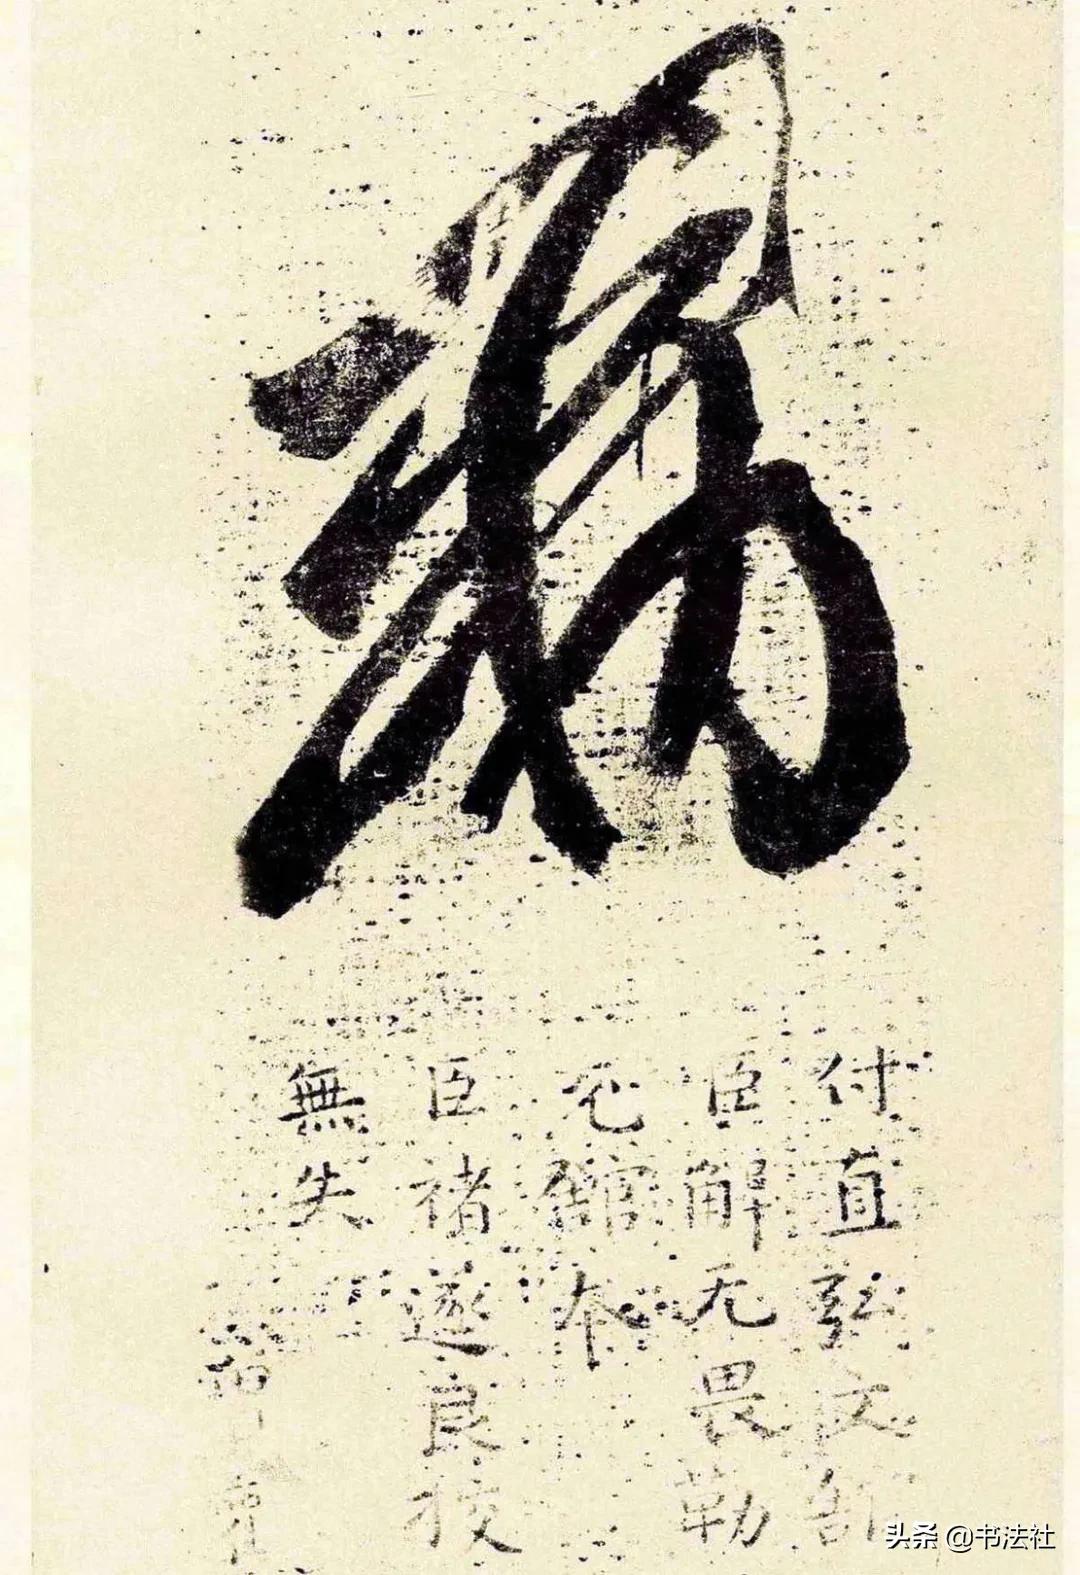 敕
付直弘文舘
臣解无畏勒
充舘本
臣褚遂良挍
無失
头条 @书法社